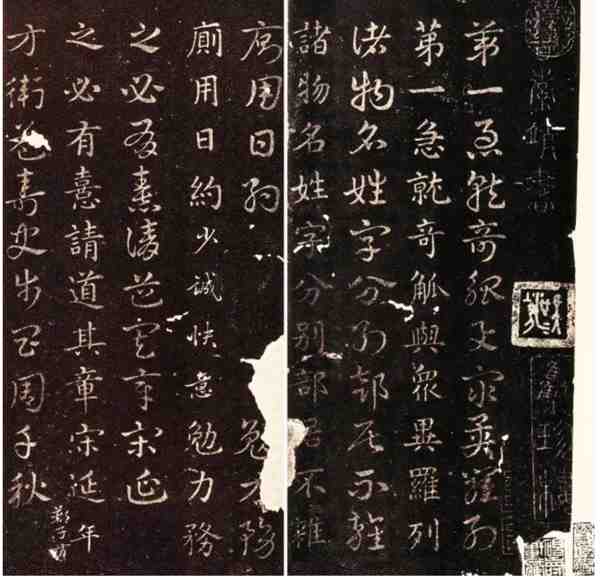 書
第一急就奇觚與衆異羅列
第一急就奇觚與衆異羅列
諸物名姓字分別部居不雜
諸物名姓字分別部居不雜
廁用日約勉力務
廁用日約少誠快意勉力務
之必有憙請道其章宋延
之必有憙請道其章宋延年
鄭子方
方衛益壽史步昌周千秋